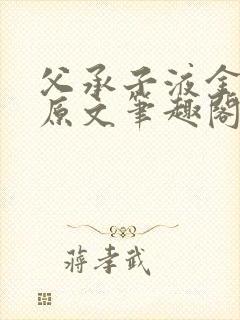 父承子液全
原文笔趣阁
蒋孝武